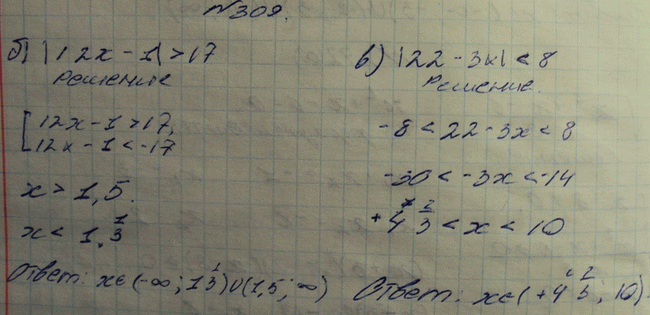 №309.
б) |12x - 1| > 17
Решение
[12x - 1 > 17,
[12x - 1 < -17
x > 1,5.
x < 1 1/3
Ответ: x∈(-∞; 1 1/3)∪(1,5; ∞)
в) |22 - 3x| < 8
Решение.
-8 < 22 - 3x < 8
-30 < -3x < -14
+4 2/3 < x < 10
Ответ: x∈(+4 2/3; 10)